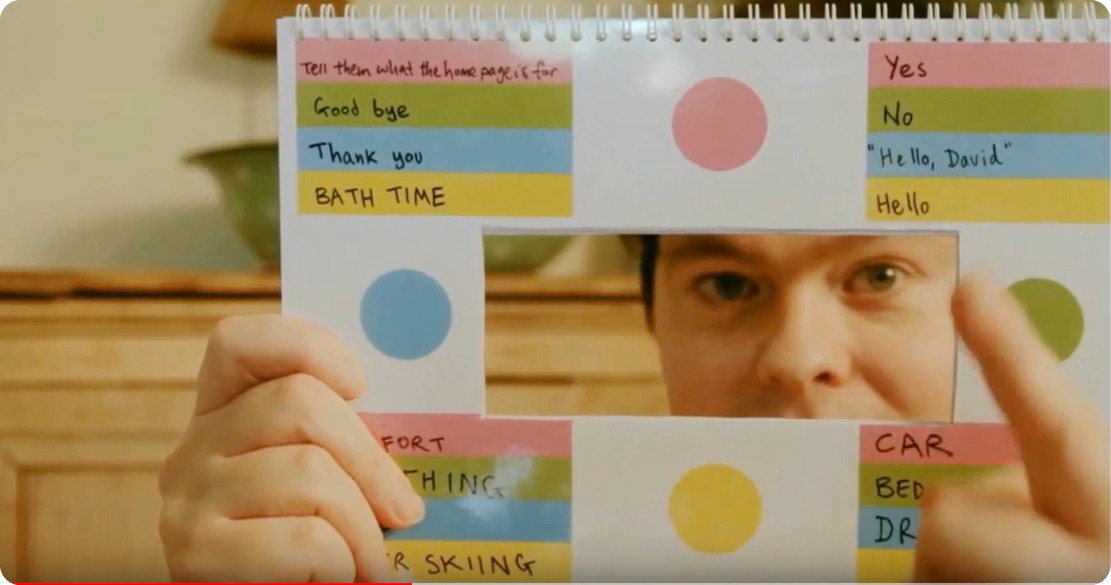 Tell them what the home page is for
Good bye
Thank you
BATH TIME
Yes
No
"Hello, David"
Hello
FORT
THING
R SKIING
CAR
BED
DR